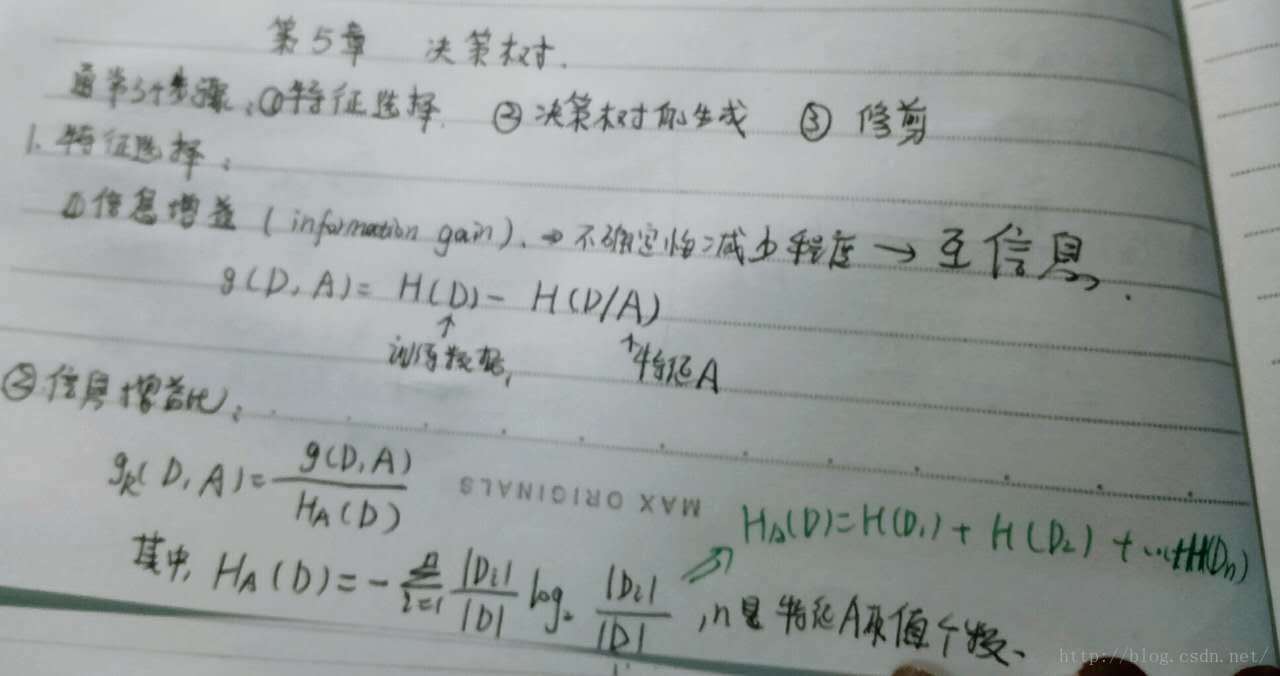 第5章 决策树.
通常3个步骤:①特征选择 ②决策树的生成 ③ 修剪
1. 特征选择:
①信息增益 (information gain). → 不确定性减少程度 → 互信息.
g(D,A)= H(D)- H(D/A)
↑ ↑
训练数据, 特征A
②信息增益比:
g_R(D,A)= g(D,A) / H_A(D)
MAX ORIGINALS
H_A(D)=H(D₁)+ H(D₂) + ...+H(Dₙ)
其中, H_A(D)= - Σ_{i=1}^{n} |Di|/|D| log₂ |Di|/|D| ,n是特征A取值个数、
http://blog.csdn.net/